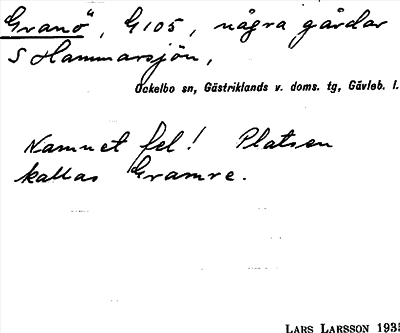 Granö, G105, några gårdar
S Hammarsjön,
Ockelbo sn, Gästriklands v. doms. tg, Gävleb. l.
Namnet fel! Platsen
kallas Gramre.
LARS LARSSON 193